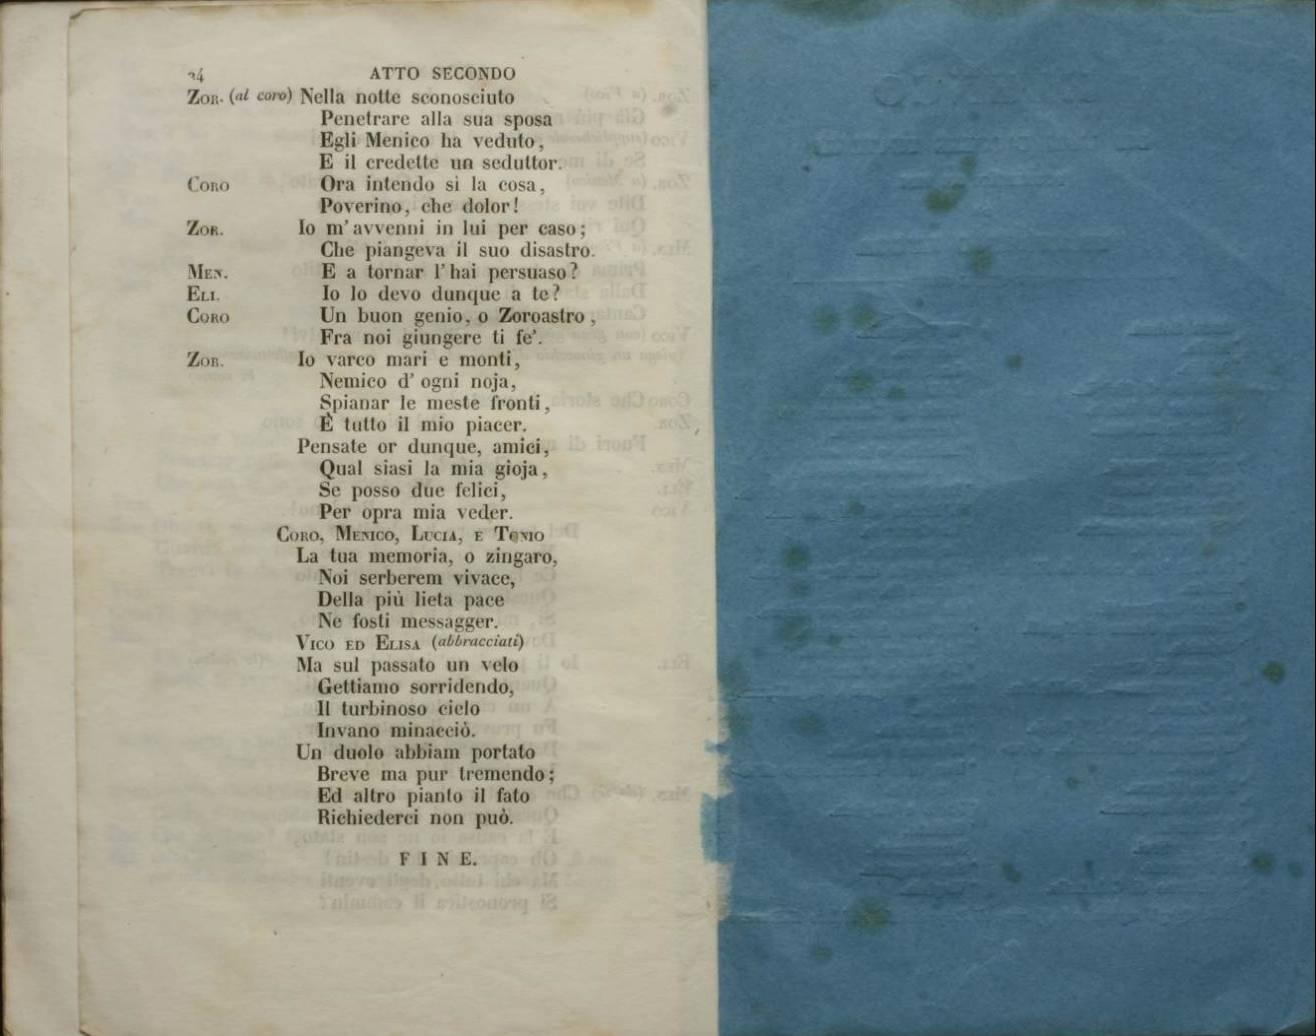 24 ATTO SECONDO
ZOR. (al coro) Nella notte sconosciuto
Penetrare alla sua sposa
Egli Menico ha veduto,
E il credette un seduttor.
CORO Ora intendo sì la cosa,
Poverino, che dolor!
ZOR. Io m'avvenni in lui per caso;
Che piangeva il suo disastro.
MEN. E a tornar l'hai persuaso?
ELI. Io lo devo dunque a te?
CORO Un buon genio, o Zoroastro,
Fra noi giungere ti fe'.
ZOR. Io varco mari e monti,
Nemico d'ogni noja,
Spianar le meste fronti,
È tutto il mio piacer.
Pensate or dunque, amici,
Qual siasi la mia gioja,
Se posso due felici,
Per opra mia veder.
CORO, MENICO, LUCIA, E TONIO
La tua memoria, o zingaro,
Noi serberem vivace,
Della più lieta pace
Ne fosti messagger.
VICO ED ELISA (abbracciati)
Ma sul passato un velo
Gettiamo sorridendo,
Il turbinoso cielo
Invano minacciò.
Un duolo abbiam portato
Breve ma pur tremendo;
Ed altro pianto il fato
Richiederci non può.
FINE.